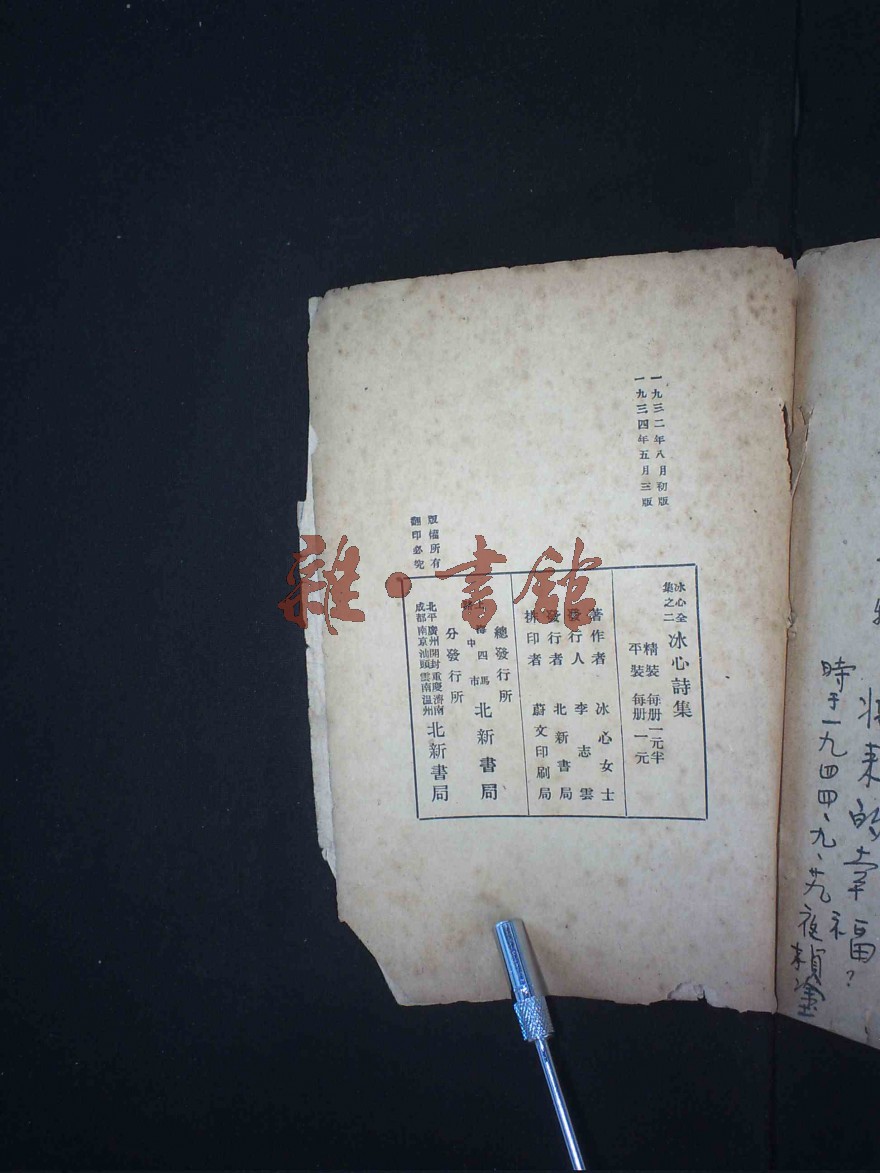 將来的幸福?
時于一九四四、九、廿九夜
一九三二年八月初版
一九三四年五月三版
冰心全集之二
冰心詩集
精裝 每册一元半
平裝 每册一元
著作者 冰心女士
發行人 李志雲
發行者 北新書局
排印者 蔚文印刷局
總發行所
上海四馬路中市 北新書局
分發行所
北平廣州開封重慶濟南
成都南京汕頭雲南溫州
北新書局
版權所有
翻印必究
雜·書館